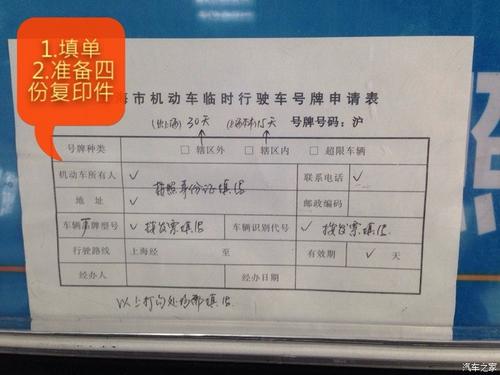 1.填单
2.准备四
份复印件
海市机动车临时行驶车号牌申请表
30天 15天 号牌号码：沪
号牌种类 □ 辖区外 □ 辖区内 □ 超限车辆
机动车所有人 ✓ 按照身份证填写 联系电话 ✓
地址 ✓ 邮政编码
车辆厂牌型号 ✓ 按发票填写 车辆识别代号 ✓ 按发票填写
行驶路线 上海经 至 有效期 ✓ 天
经办人 经办日期
以上打勾处均部填写
汽车之家